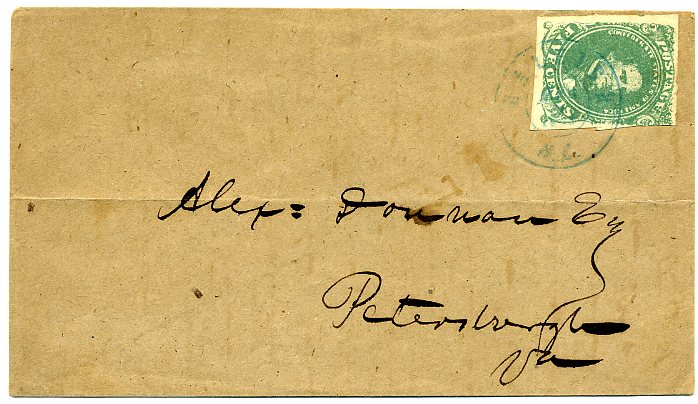 POSTAGE
CONFEDERATE STATES OF AMERICA
FIVE CENTS
Alex: Donnan Esq
Petersburgh
Va